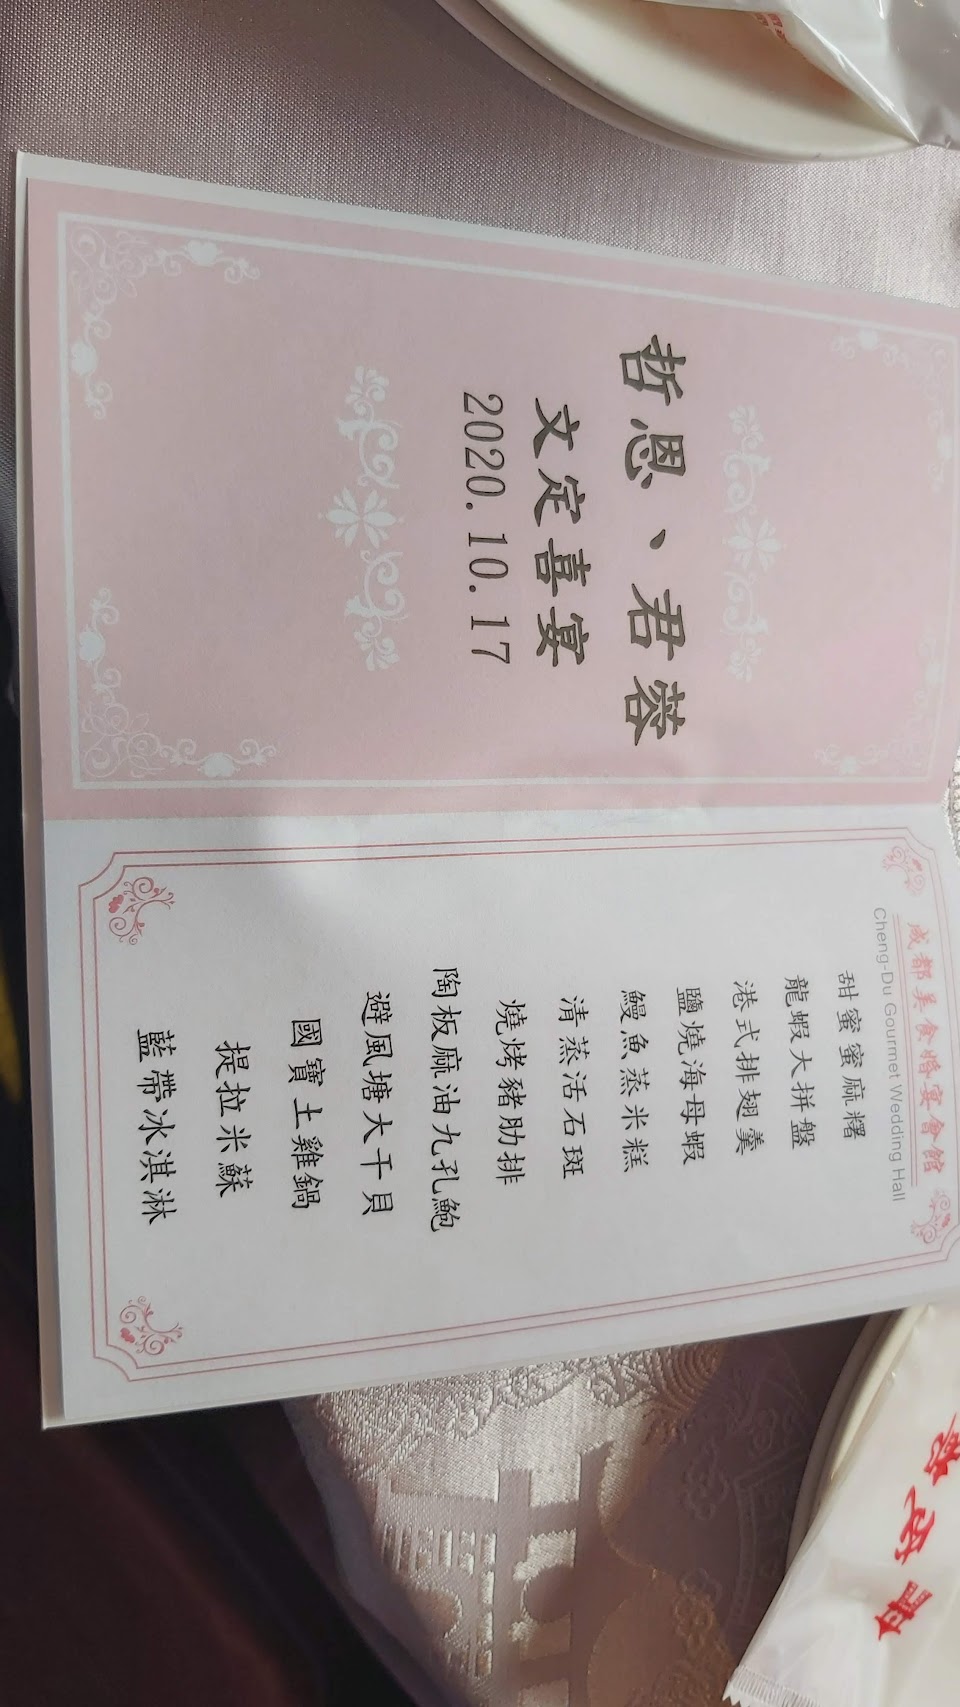 哲恩、君蓉
文定喜宴
2020.10.17
成都美食婚宴會館
Cheng-Du Gourmet Wedding Hall
甜蜜蜜麻糬
龍蝦大拼盤
港式排翅羹
鹽燒海母蝦
鰻魚蒸米糕
清蒸活石斑
燒烤豬肋排
陶板麻油九孔鮑
避風塘大干貝
國寶土雞鍋
提拉米蘇
藍帶冰淇淋